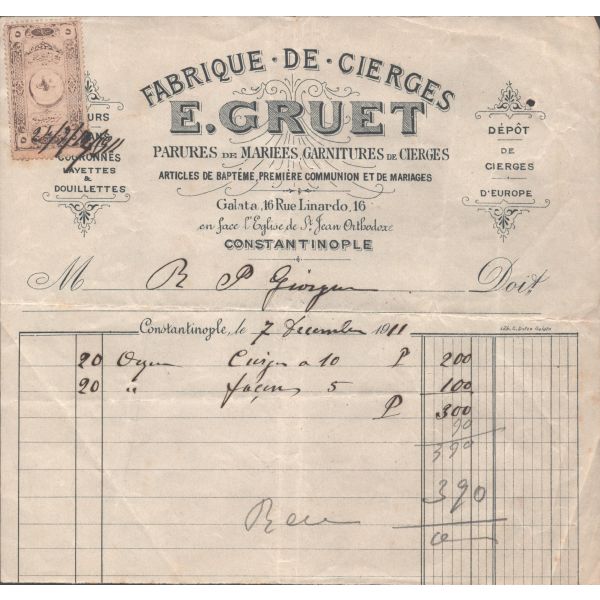 FABRIQUE · DE · CIERGES
E. GRUET
PARURES DE MARIÉES, GARNITURES DE CIERGES
ARTICLES DE BAPTÊME, PREMIÈRE COMMUNION ET DE MARIAGES
Galata, 16 Rue Linardo, 16
en face l'Eglise de St Jean Orthodoxe
CONSTANTINOPLE
COURONNES
LAYETTES
&
DOUILLETTES
DÉPÔT
DE
CIERGES
D'EUROPE
M R P Doit
Constantinople, le 7 Décembre 1911
20 a 10 P 200
20 " façons 5 100
P 300
90
390
390